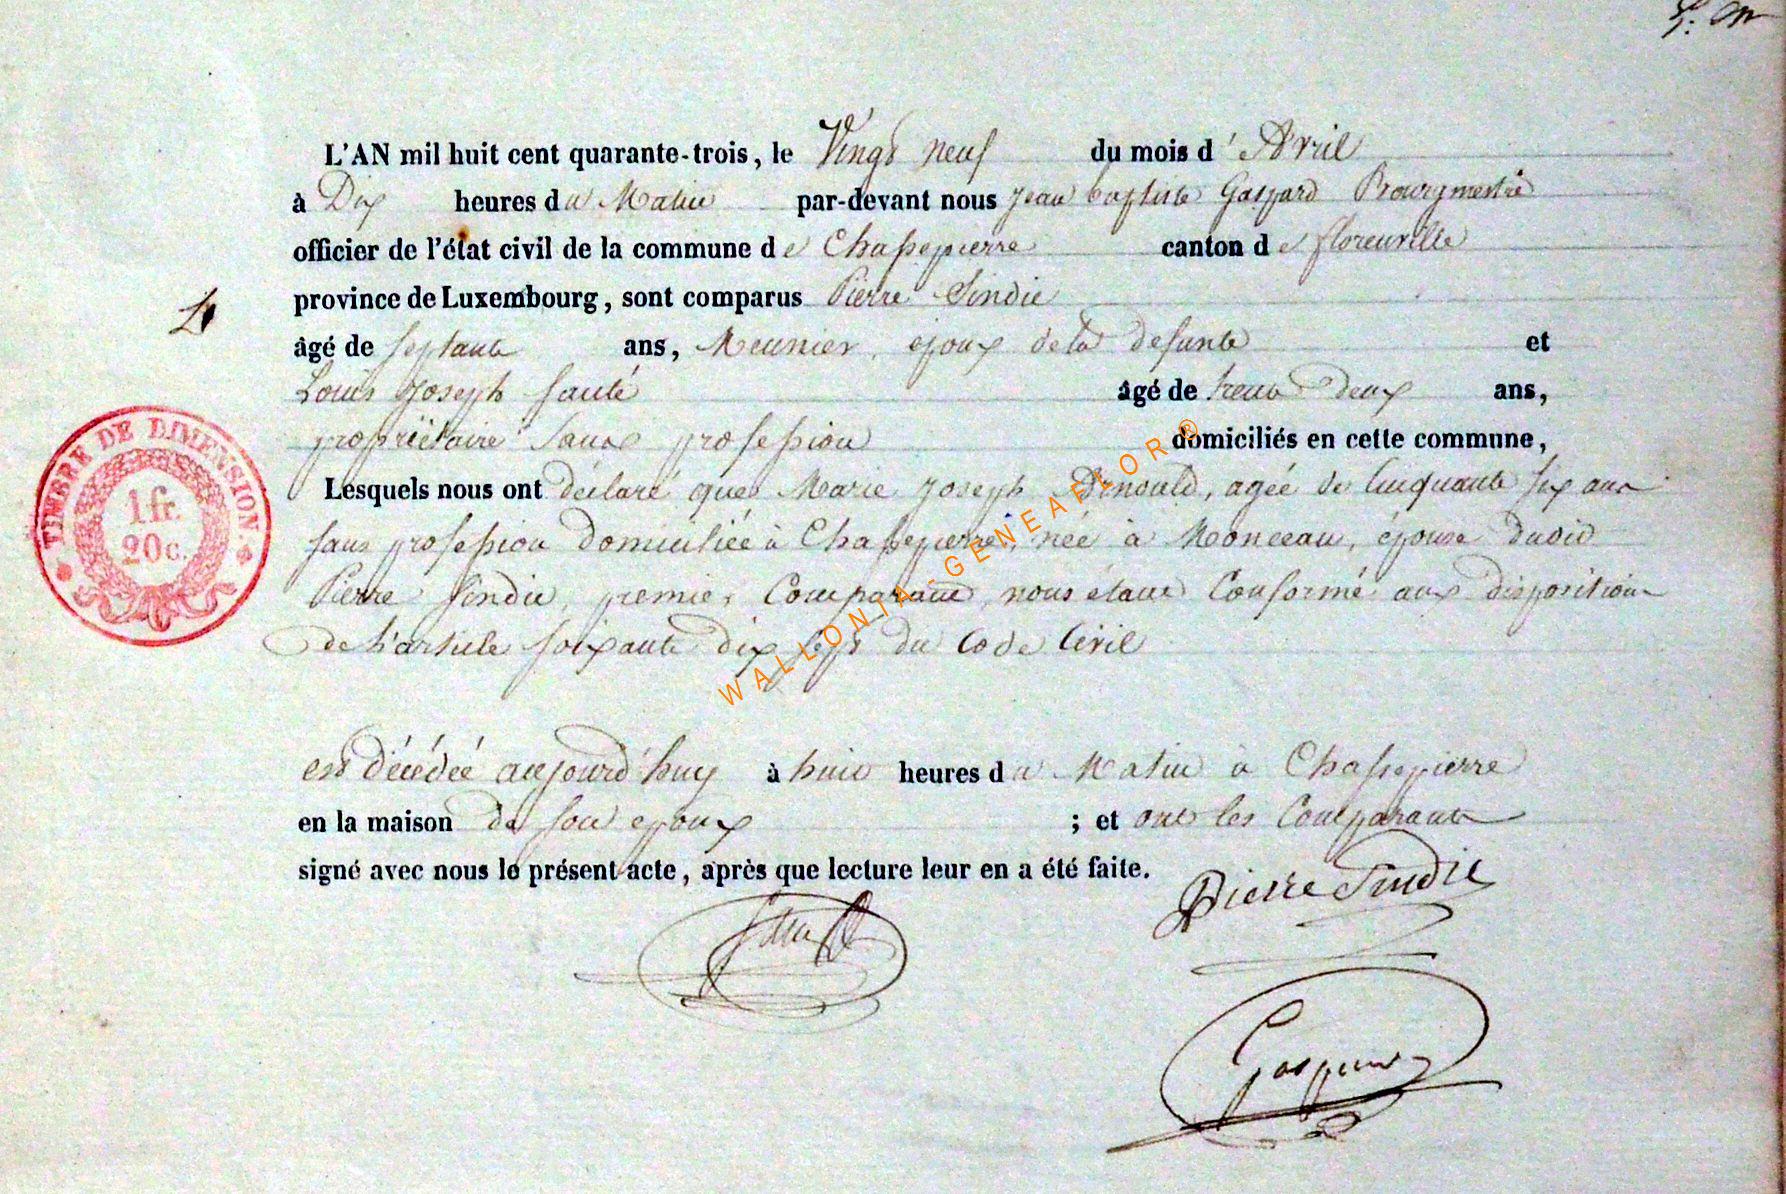 L'AN mil huit cent quarante-trois, le Vingt neuf du mois d'Avril
à Dix heures du Matin par-devant nous jean baptiste Gaspard Bourgmestre
officier de l'état civil de la commune de Chassepierre canton de florenville
province de Luxembourg, sont comparus Pierre Sindic
4
âgé de septante ans, Meunier, epoux de la defunte et
Louis joseph âgé de trente deux ans,
propriétaire sans profession domiciliés en cette commune,
Lesquels nous ont déclaré que Marie joseph, agée de Cinquante six ans
sans profession domiciliée à Chassepierre, née à Monceau, épouse dudit
Pierre Sindic, premier Comparant, nous étant Conformé aux disposition
de l'article soixante dix sept du Code Civil
TIMBRE DE DIMENSION.
1 fr.
20 c.
WALLONIA-GENEAFLOR®
est décédée aujourd'huy à huit heures du Matin à Chassepierre
en la maison de son epoux ; et ont les Comparants
signé avec nous le présent acte, après que lecture leur en a été faite.
Pierre Sindic
Gaspard